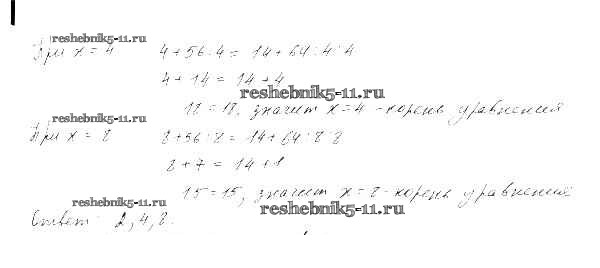 reshebnik5-11.ru
При x = 4 4 + 56 : 4 = 14 + 64 : 4 : 4
4 + 14 = 14 + 4
reshebnik5-11.ru
18 = 18, значит x = 4 - корень уравнения
reshebnik5-11.ru
При x = 8 8 + 56 : 8 = 14 + 64 : 8 : 8
8 + 7 = 14 + 1
15 = 15, значит x = 8 - корень уравнения
reshebnik5-11.ru
reshebnik5-11.ru
Ответ: 2, 4, 8.